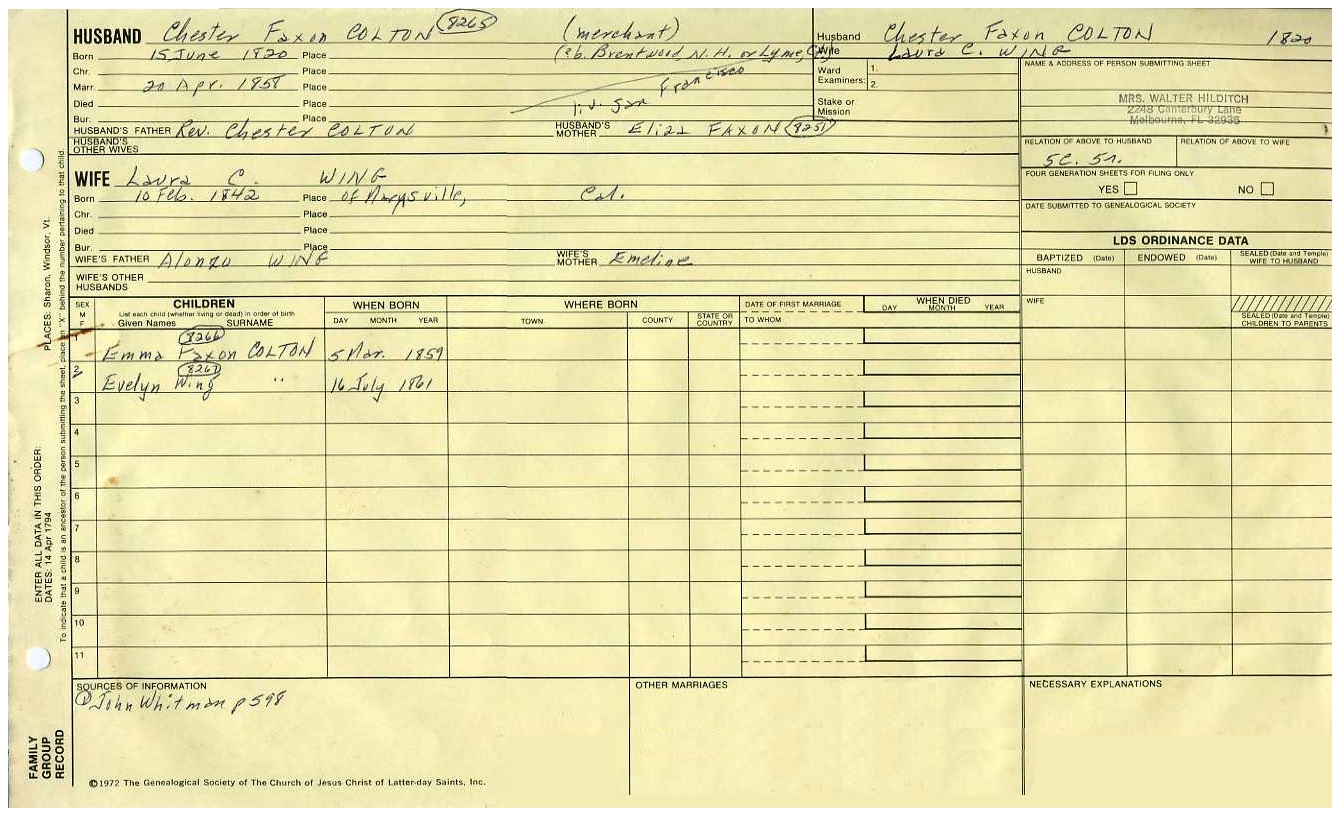 HUSBAND Chester Faxon COLTON 8265 (merchant)
Born 15 June 1820 Place (?b. Brentwood, N.H. or Lyme, Ct.)
Chr. Place
Marr. 20 Apr. 1858 Place liv. San Francisco
Died Place
Bur. Place
HUSBAND'S FATHER Rev. Chester COLTON HUSBAND'S MOTHER Eliza FAXON 8251
HUSBAND'S OTHER WIVES
WIFE Laura C. WING
Born 10 Feb. 1842 Place of Marysville, Cal.
Chr. Place
Died Place
Bur. Place
WIFE'S FATHER Alonzo WING WIFE'S MOTHER Emeline
WIFE'S OTHER HUSBANDS
Husband Chester Faxon COLTON 1820
Wife Laura C. WING
Ward 1.
Examiners: 2.
Stake or Mission
NAME & ADDRESS OF PERSON SUBMITTING SHEET
MRS. WALTER HILDITCH
2248 Canterbury Lane
Melbourne, FL 32935
RELATION OF ABOVE TO HUSBAND RELATION OF ABOVE TO WIFE
5C. 5r.
FOUR GENERATION SHEETS FOR FILING ONLY
YES NO
DATE SUBMITTED TO GENEALOGICAL SOCIETY
LDS ORDINANCE DATA
BAPTIZED (Date) ENDOWED (Date) SEALED (Date and Temple) WIFE TO HUSBAND
HUSBAND
WIFE
SEALED (Date and Temple) CHILDREN TO PARENTS
SEX M F
CHILDREN
List each child (whether living or dead) in order of birth
Given Names SURNAME
WHEN BORN
DAY MONTH YEAR
WHERE BORN
TOWN COUNTY STATE OR COUNTRY
DATE OF FIRST MARRIAGE
TO WHOM
WHEN DIED
DAY MONTH YEAR
1 8266
Emma Faxon COLTON 5 Mar. 1859
2 8267
Evelyn Wing " 16 July 1861
3
4
5
6
7
8
9
10
11
SOURCES OF INFORMATION
① John Whitman p 598
OTHER MARRIAGES
NECESSARY EXPLANATIONS
©1972 The Genealogical Society of The Church of Jesus Christ of Latter-day Saints, Inc.
FAMILY GROUP RECORD
ENTER ALL DATA IN THIS ORDER:
DATES: 14 Apr 1794 PLACES: Sharon, Windsor, Vt.
To indicate that a child is an ancestor of the person submitting the sheet, place an "X" behind the number pertaining to that child.